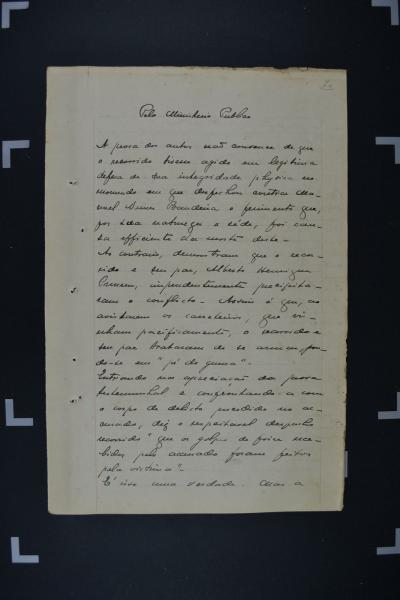 Pelo Ministerio Publico
A prova dos autos não convence de que
o recorrido tivesse agido em legitima
defesa de sua integridade physica no
momento em que desfechou contra Ma-
noel Bandeira o ferimento que,
por sua natureza e séde, foi cau-
sa efficiente da morte deste.
Ao contrario, demonstram que o recor-
rido e seu pae, Alberto Henrique
imprudentemente precipita-
ram o conflicto. Assim é que, ao
avistarem os cavalleiros, que vi-
nham pacificamente, o recorrido e
seu pae trataram de se armar, pon-
do-se em "pé de guerra".
Entrando na apreciação da prova
testemunhal e confrontando-a com
o corpo de delicto procedido no ac-
cusado, diz o respeitavel despacho
recorrido "que os golpes de foice rece-
bidos pelo accusado foram feitos
pela victima".
É isso uma verdade. Mas a